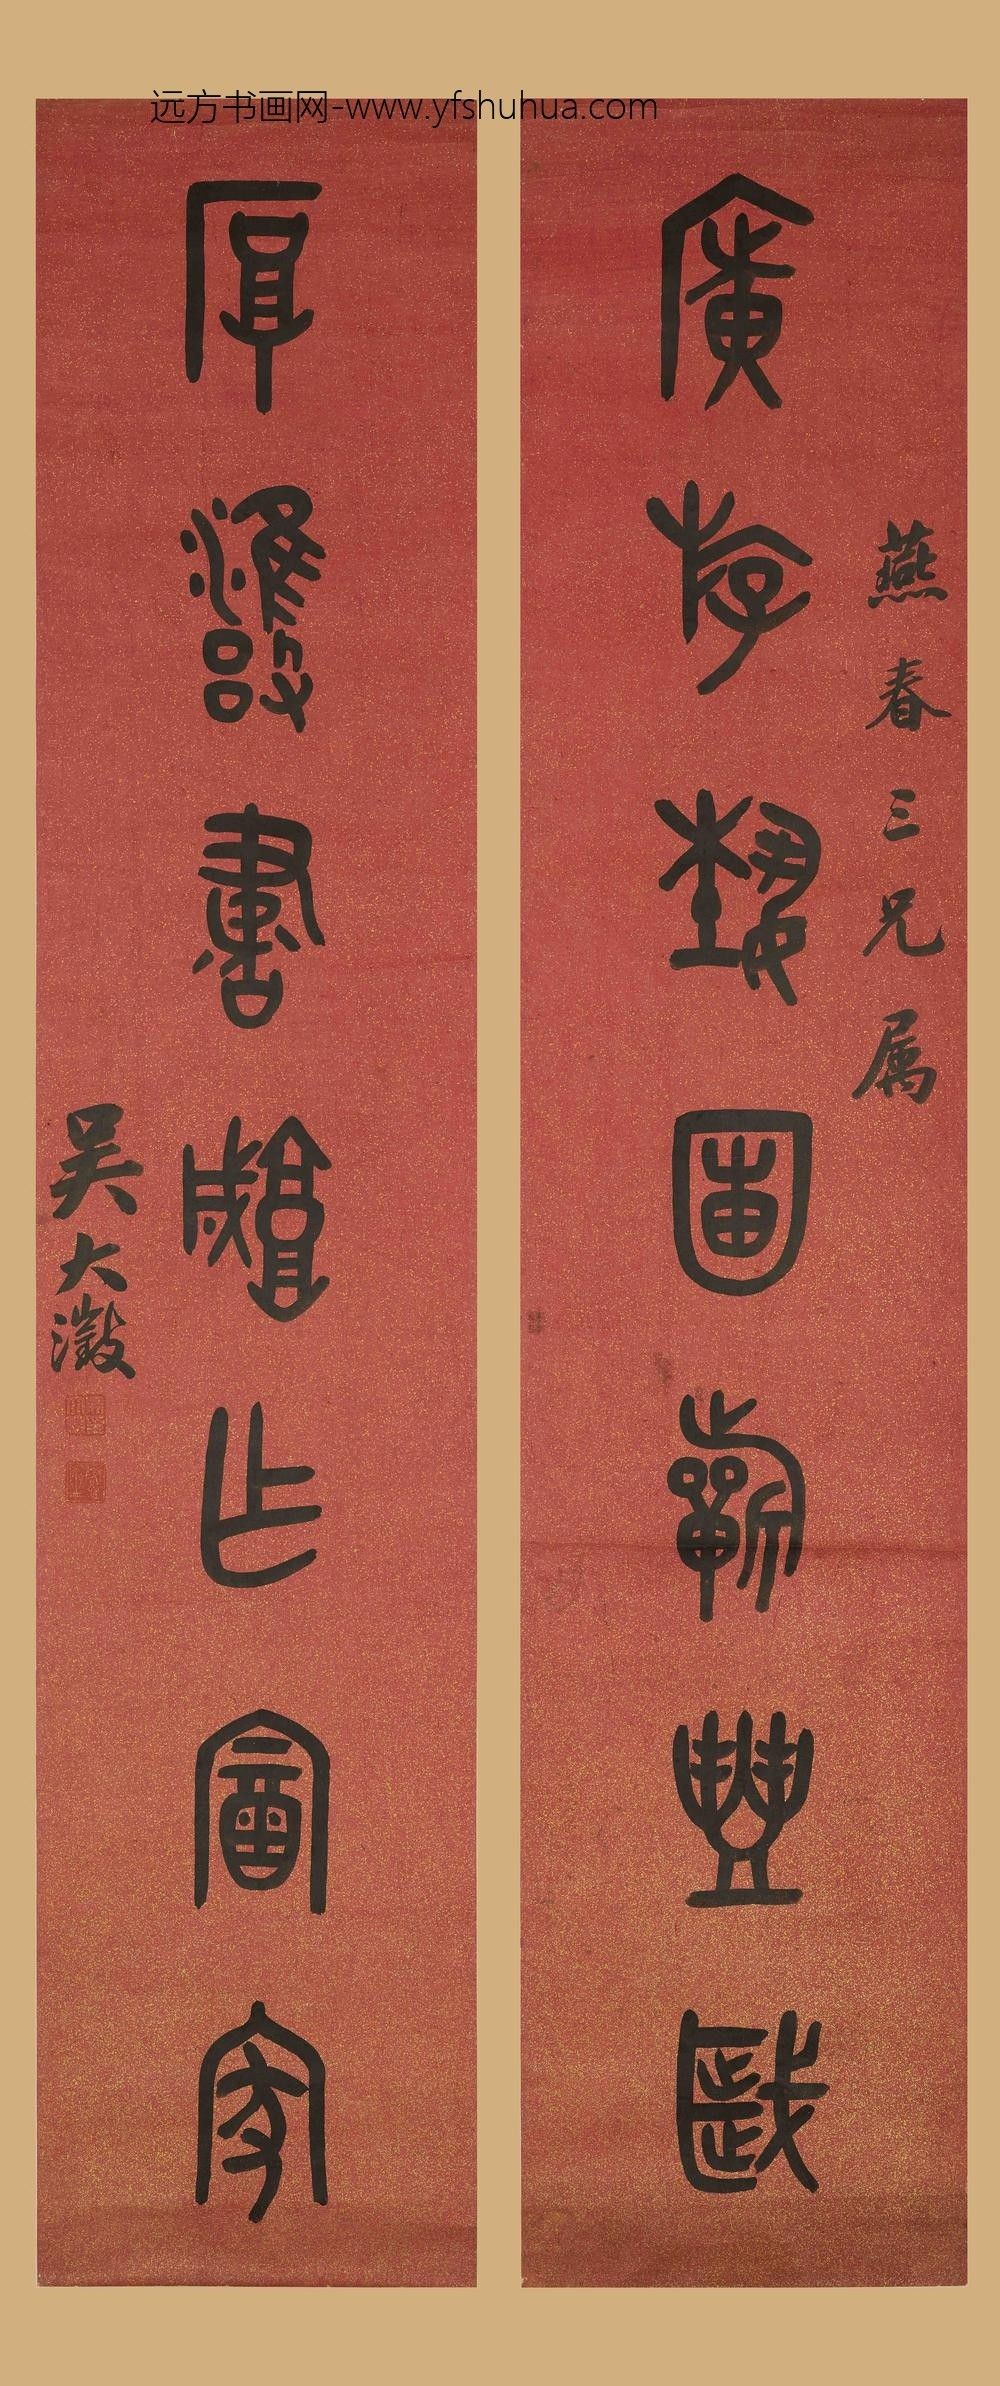 远方书画网-www.yfshuhua.com
燕春三兄属
廣存藝圃蘄豐歲
厚擁書倉作富家
吴大澂